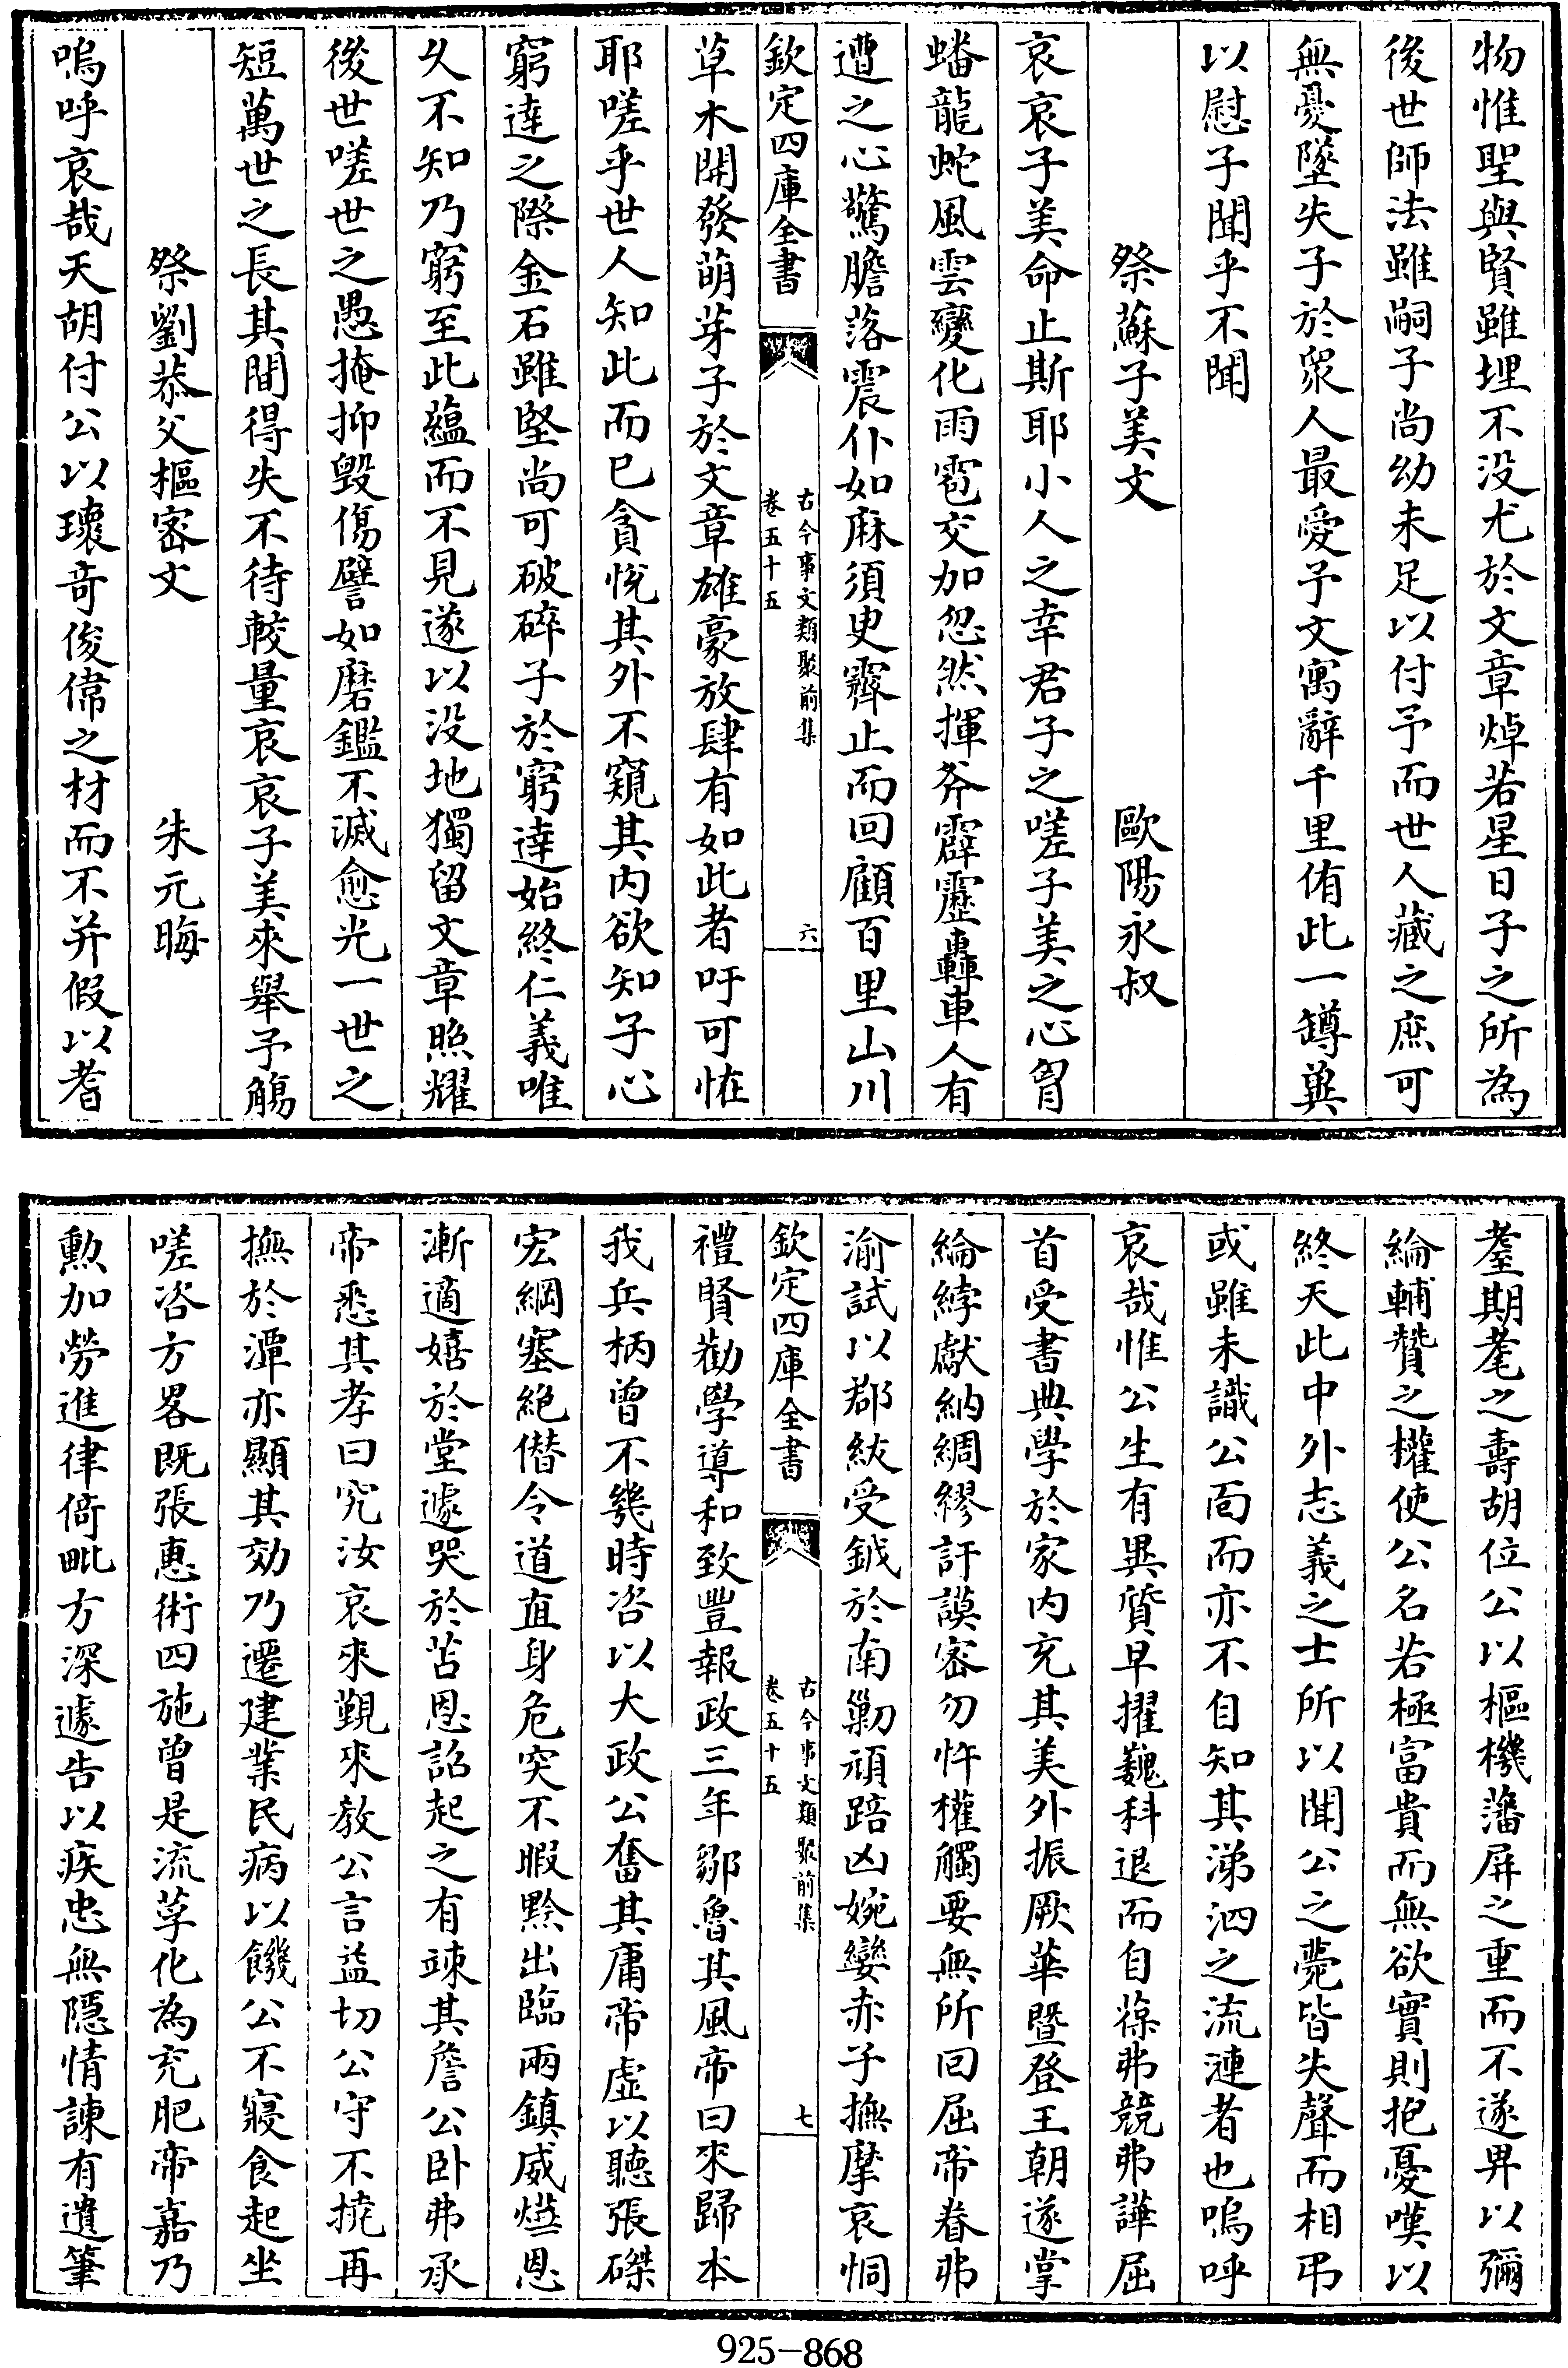 物惟聖與賢雖埋不没尤於文章焯若星日子之所為
後世師法雖嗣子尚幼未足以付予而世人藏之庶可
無憂墜失子於衆人最愛予文寓辭千里侑此一罇兾
以慰子聞乎不聞
祭蘇子美文　歐陽永叔
哀哀子美命止斯耶小人之幸君子之嗟子美之心胷
蟠龍蛇風雲變化雨雹交加忽然揮斧霹靂轟車人有
遭之心驚膽落震仆如麻須臾霽止而回顧百里山川
欽定四庫全書
古今事文類聚前集
卷五十五
六
草木開發萌芽子於文章雄豪放肆有如此者吁可恠
耶嗟乎世人知此而已貪恱其外不窺其内欲知子心
窮達之際金石雖堅尚可破碎子於窮達始終仁義唯
乆不知乃窮至此藴而不見遂以没地獨留文章照耀
後世嗟世之愚掩抑毁傷譬如磨鑑不滅愈光一世之
短萬世之長其間得失不待較量哀哀子美來舉予觴
祭劉恭父樞密文　朱元晦
嗚呼哀哉天胡付公以瓌竒俊偉之材而不并假以耆
耋期耄之壽胡位公以樞機藩屏之重而不遂畀以彌
綸輔贊之權使公名若極富貴而無欲實則抱憂嘆以
終天此中外志義之士所以聞公之薨皆失聲而相弔
或雖未識公面而亦不自知其涕泗之流漣者也嗚呼
哀哉惟公生有異質早擢巍科退而自葆弗競弗譁屈
首受書典學於家内充其美外振厥華暨登王朝遂掌
綸綍獻納綢繆訏謨密勿忤權觸要無所回屈帝眷弗
渝試以郡紱受鉞於南劋頑踣凶婉孌赤子撫摩哀恫
欽定四庫全書
古今事文類聚前集
卷五十五
七
禮賢勸學導和致豐報政三年鄒魯其風帝曰來歸本
我兵柄曾不幾時咨以大政公奮其庸帝虚以聽張磔
宏綱塞絶僭令道直身危突不暇黔出臨兩鎮威燕恩
漸適嬉於堂遽哭於苫恩詔起之有竦其詹公卧弗承
帝悉其孝曰究汝哀來覲來教公言益切公守不撓再
撫於潭亦顯其効乃遷建業民病以饑公不寢食起坐
嗟咨方畧既張惠術四施曾是流莩化為充肥帝嘉乃
勲加勞進律倚毗方深遽告以疾忠無隱情諫有遺筆
925-868